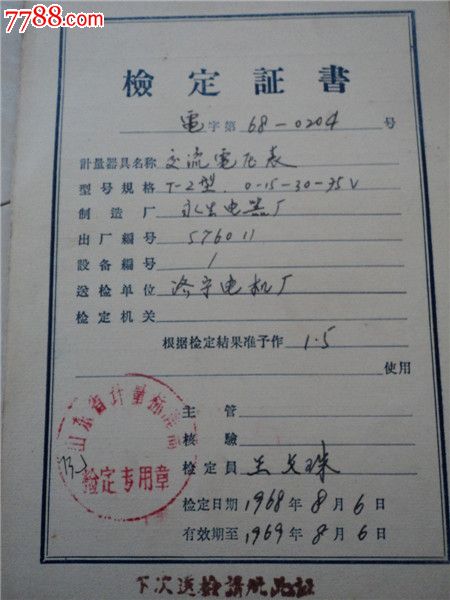 7788.com
檢定証書
電字第 68-0204 号
計量器具名称 交流電压表
型号規格 T-2型. 0-15-30-75V
制造厂 永生电器厂
出厂編号 576011
設备編号 1
送检单位 济宁电机厂
检定机关
根据检定結果准予作 1.5
使用
主管
核驗
检定員
检定日期 1968年8月6日
有效期至 1969年8月6日
山东省計量标准局
检定专用章
下次送檢請帶此証